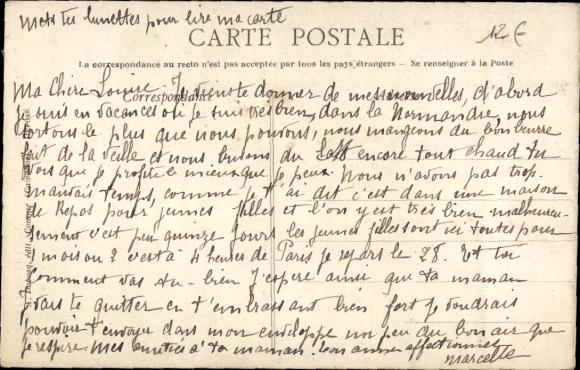 Mets tes lunettes pour lire ma carte
12€
CARTE POSTALE
La correspondance au recto n'est pas acceptée par tous les pays étrangers — Se renseigner à la Poste
Correspondance
Ma Chère Louise Je viens te donner de mes nouvelles, d'abord
je suis en vacances où je suis très bien, dans la Normandie, nous
sortons le plus que nous pouvons, nous mangeons du bon beurre
fait de la veille et nous buvons du lait encore tout chaud tu
vois que je profite mieux que je peux. Nous n'avons pas trop
mauvais temps, comme je t'ai dit c'est dans une maison
de Repos pour jeunes filles et l'on y est très bien malheureu-
sement c'est peu quinze jours les jeunes filles sont ici toutes pour
1 mois ou 2 c'est à 4 heures de Paris je repars le 28. Et toi
comment vas tu - bien j'espère ainsi que ta maman
je vais te quitter en t'embrassant bien fort je voudrais
pouvoir t'envoyer dans mon enveloppe un peu du bon air que
je respire. Mes amitiés à ta maman. ton amie affectionnée
Marcelle